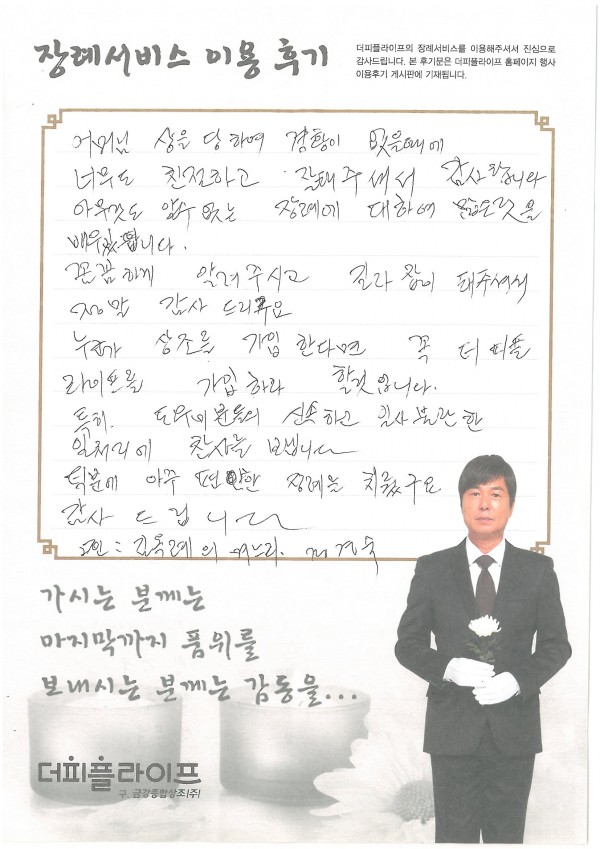 장례서비스 이용 후기
더피플라이프의 장례서비스를 이용해주셔서 진심으로
감사드립니다. 본 후기문은 더피플라이프 홈페이지 행사
이용후기 게시판에 기재됩니다.
어머님 상을 당하여 경황이 없을때에
너무도 친절하고 잘해주셔서 감사합니다
아무것도 알수 없는 장례에 대하여 많은것을
배우 합니다.
꼼꼼하게 알려주시고 잘 해주셔서
정말 감사드리구요
누가 상조를 가입한다면 꼭 더피플
라이프를 가입하라 할것입니다.
특히. 도우미분들의 신속하고 일사불란한
일처리에 찬사를 보냅니다
덕분에 아주 편안한 장례를 치뤘구요
감사드립니다
고인: 김옥례의 며느리. 경숙
가시는 분께는
마지막까지 품위를
보내시는 분께는 감동을...
더피플라이프
구. 금강종합상조(주)